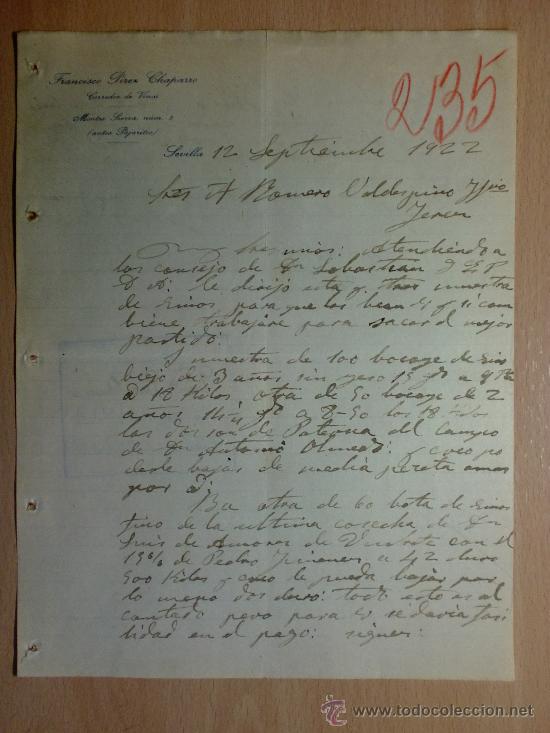 Francisco Pérez Chaparro
Corredor de Vinos
Montes Sierra, núm. 2
(antes Pajaritos)
235
Sevilla 12 Septiembre 1922
Sres A Romero Valdespino y Hno
Jerez
Muy Sres mios: Atendiendo a
los consejo de Dn Sebastian
le dirijo esta y tres muestra
de binos para que los bean U y si com
biene trabajare para sacar el mejor
partido:
1 muestra de 100 bocoye de bino
biejo de 3 años sin yeso 15
16 Kilos, otra de 50 bocoye de 2
años a 8-50 los 16 Kilos
las dos son de Paterna del Campo
de Dn Antonio Olmedo: y creo po
derle bajar de media peseta a mas
por @:
Ba otra de 60 bota de binos
fino de la ultima cosecha de Dn
Luis de de con el
15% de Pedro Jimenes a 42 duro
500 Kilos y creo le pueda bajar por
lo meno dos duro: todo esto es al
contado pero para U se daria fasi
lidad en el pago: sigue:
todocoleccion
www.todocoleccion.net